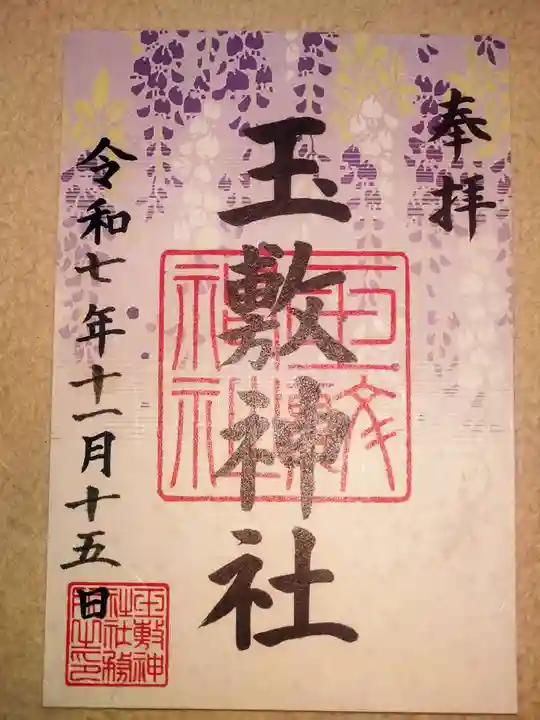 奉拝
玉敷神社
令和七年十一月十五日
玉敷神社
玉敷神社社務所之印